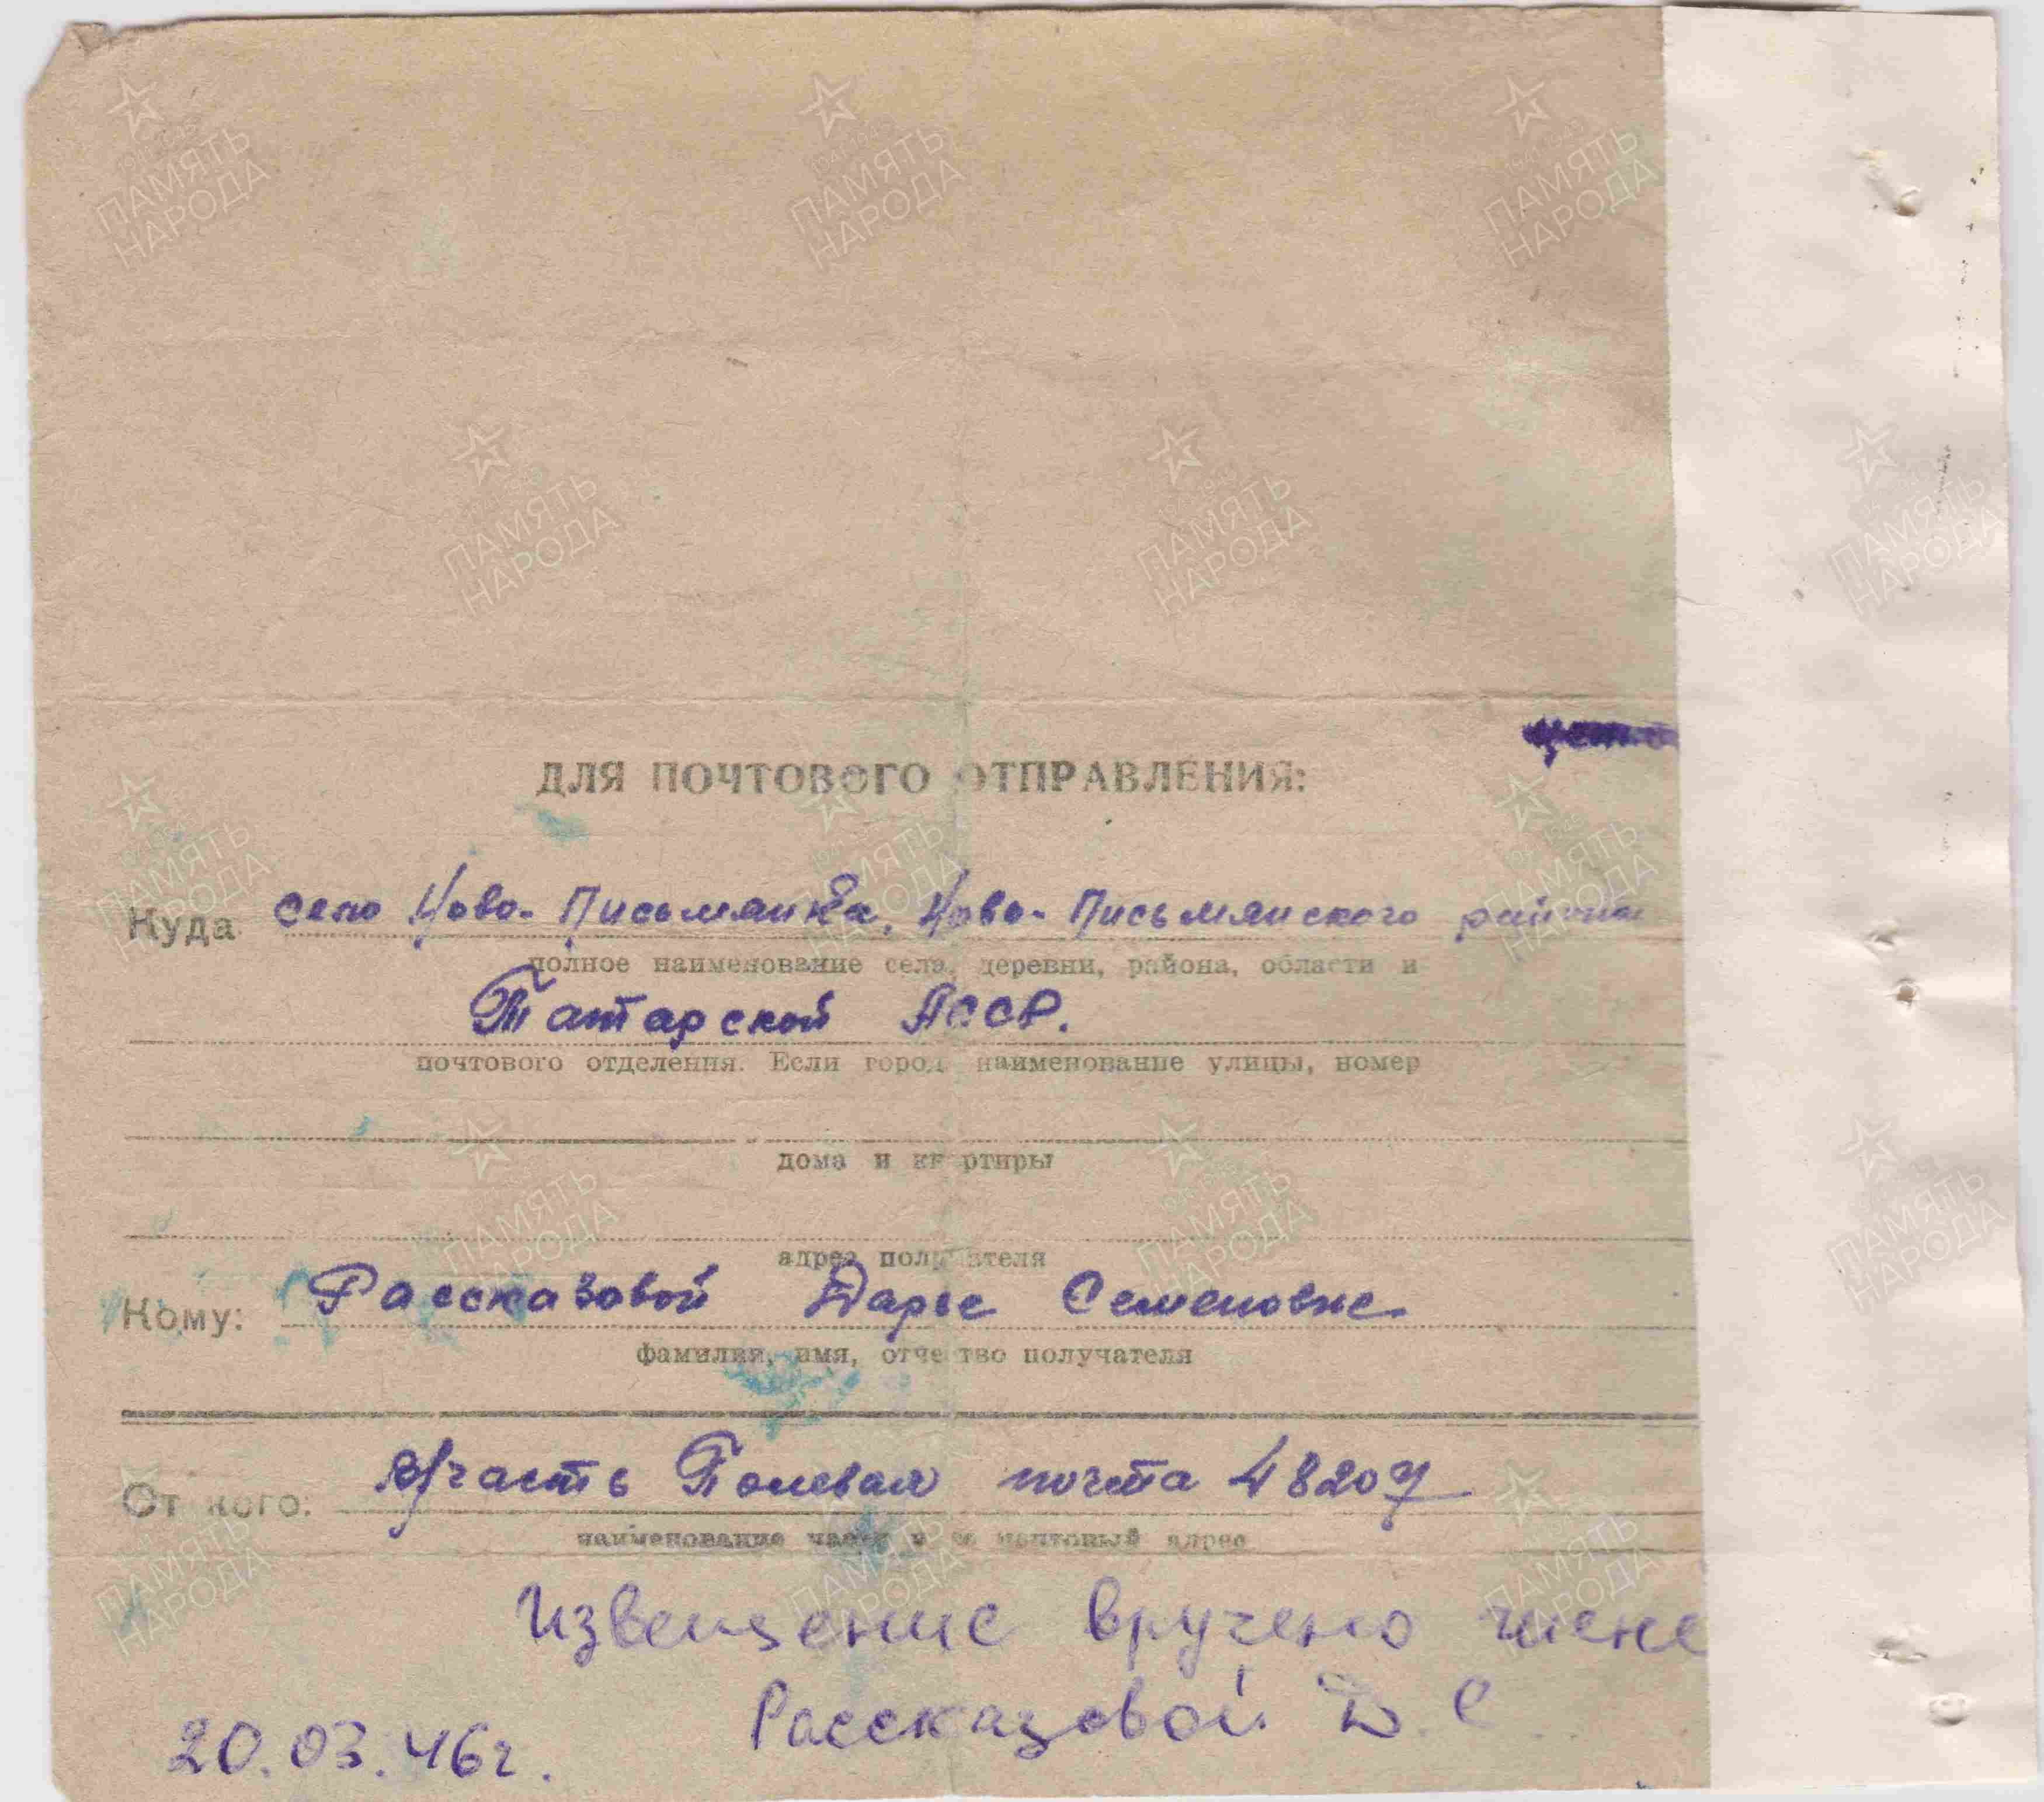 ДЛЯ ПОЧТОВОГО ОТПРАВЛЕНИЯ:
Куда село Ново-Письмянка, Ново-Письмянского района
полное наименование села, деревни, района, области и
Татарской АССР.
почтового отделения. Если город наименование улицы, номер
дома и квартиры
адрес получателя
Кому: Рассказовой Дарье Семеновне
фамилия, имя, отчество получателя
От кого: В/часть Полевая почта 48207
наименование части и ее почтовый адрес
Извещение вручено
Рассказовой Д. С
20.03.46г.
ПАМЯТЬ НАРОДА